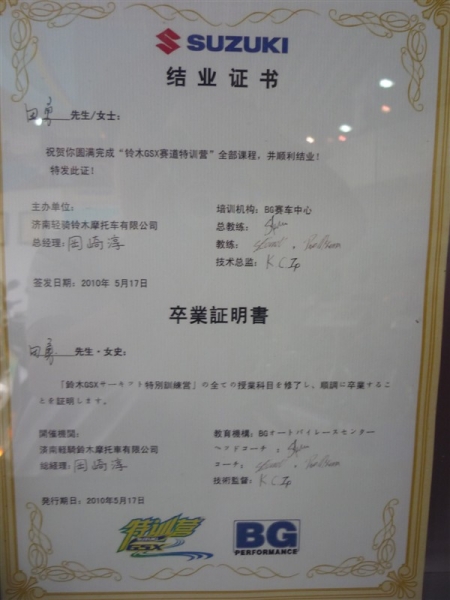 SUZUKI
结业证书
田勇 先生/女士：
祝贺你圆满完成“铃木GSX赛道特训营”全部课程，并顺利结业！
特发此证！
主办单位： 培训机构：BG赛车中心
济南轻骑铃木摩托车有限公司 总教练：
总经理：岡崎淳 教练：
技术总监：K.C.Ip
签发日期：2010年 5月17日
卒業証明書
田勇 先生・女史：
「鈴木GSXサーキット特別訓練營」の全ての授業科目を修了し、順調に卒業するこ
とを証明します。
開催機関： 教育機構：BGオートバイレースセンター
済南軽騎鈴木摩托車有限公司 ヘッドコーチ：
総経理：岡崎淳 コーチ：
技術監督：K.C.Ip
発行期日：2010年5月17日
特训营 GSX
BG
PERFORMANCE